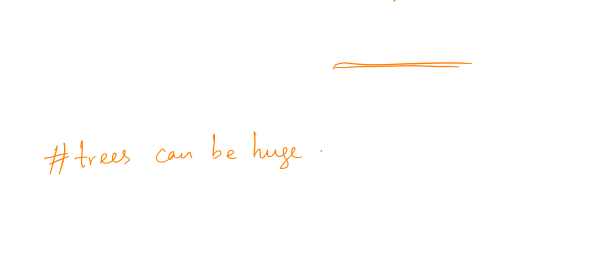 #trees can be huge.